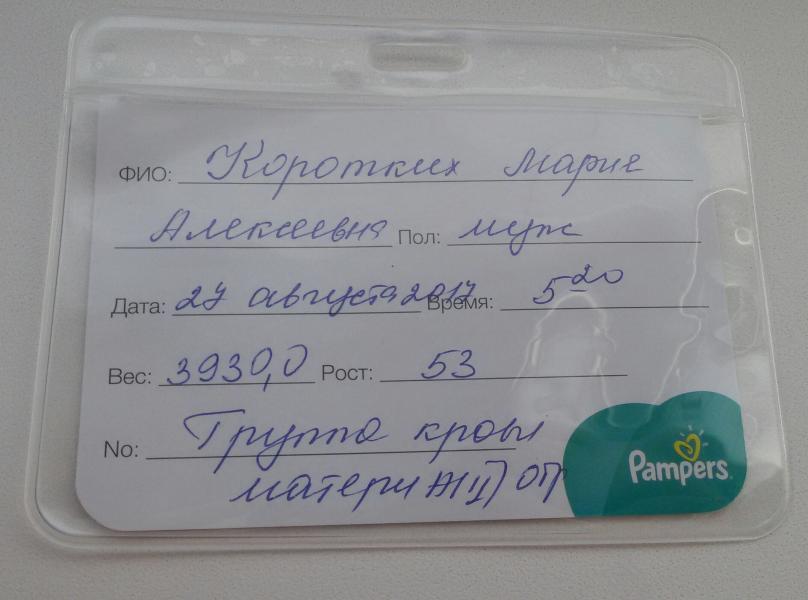 ФИО: Коротких Мария
Алексеевна Пол: муж
Дата: 27 августа 2017 Время: 5 20
Вес: 3930,0 Рост: 53
No: Группа крови
матери A(II) отр
Pampers